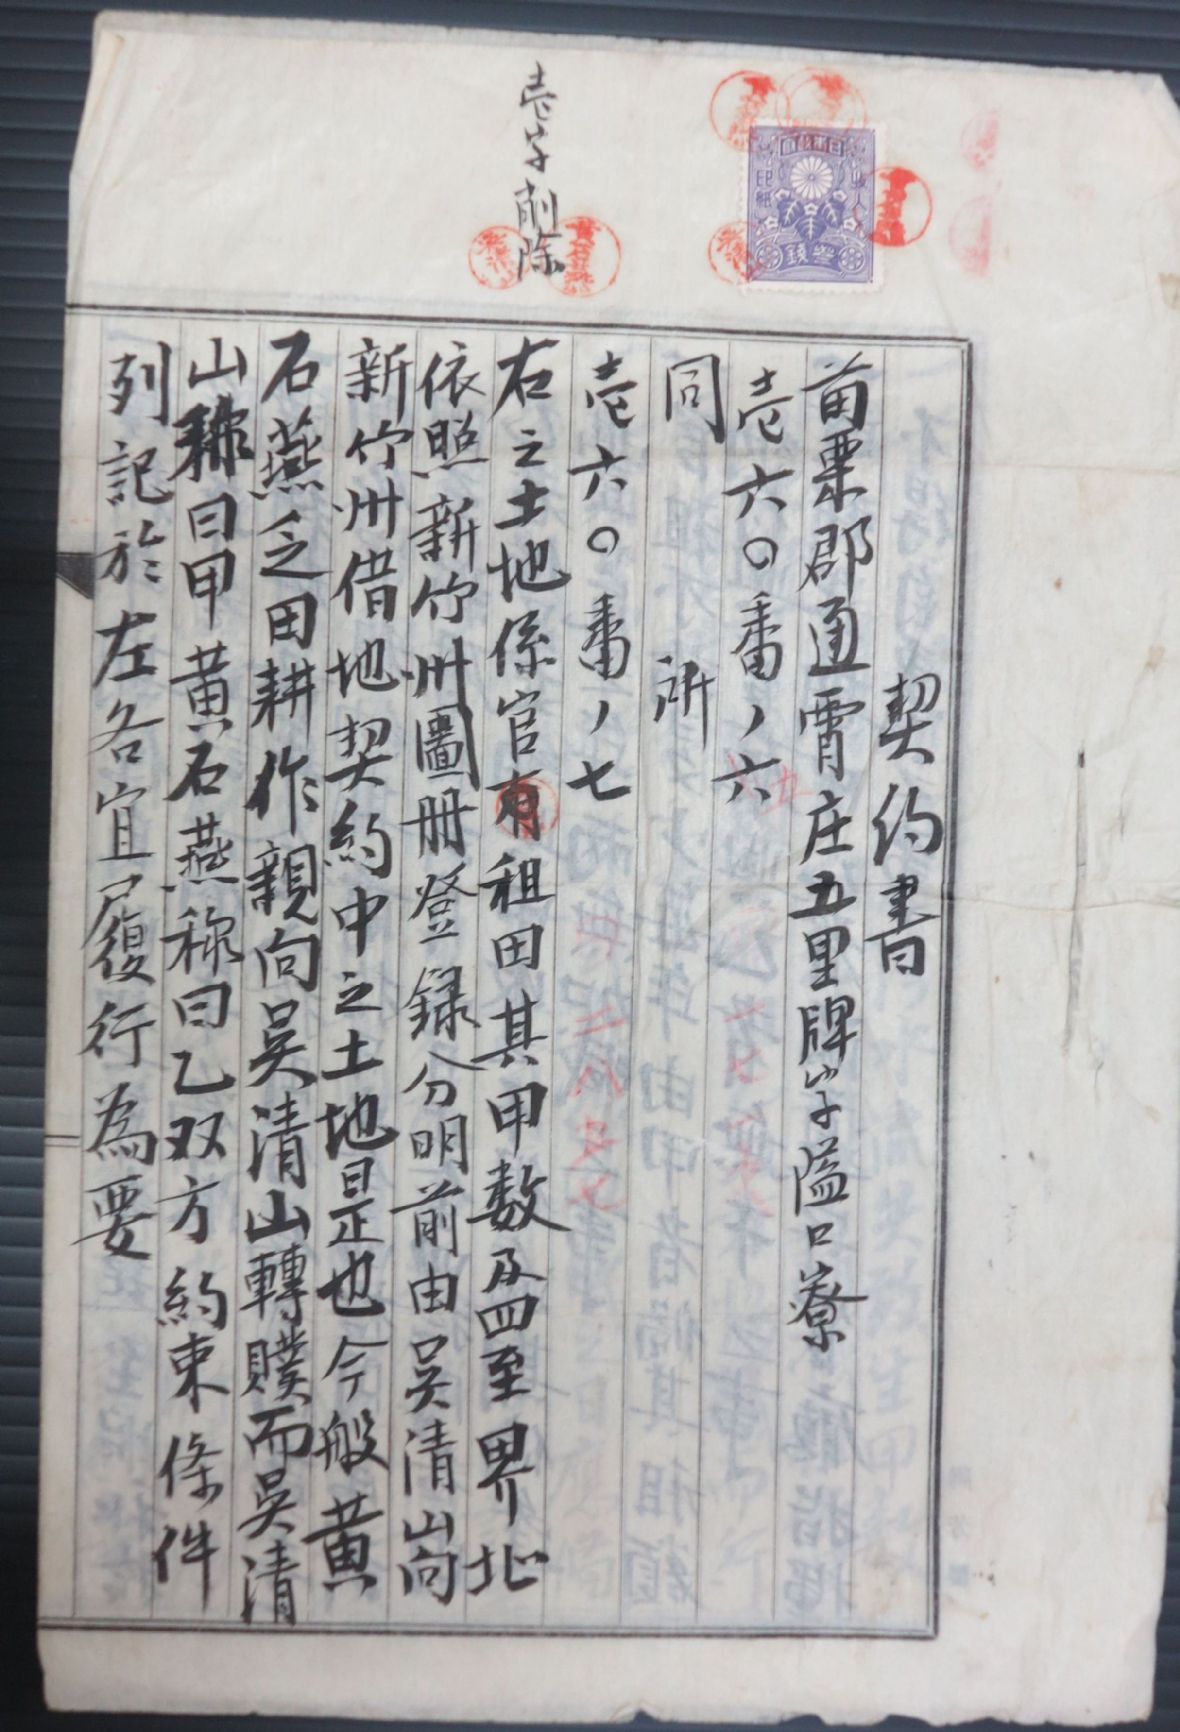 契約書
苗栗郡通霄庄五里牌字隘口寮
壱六〇番ノ六
同　所
壱六〇番ノ七
右之土地係官有租田其甲数及四至界址
依照新竹州圖册登録分明前由吳清山向
新竹州借地契約中之土地是也今般黄
石燕乏田耕作親向吳清山轉贌而吳清
山稱曰甲黄石燕称曰乙双方約束條件
列記於左各宜履行為要
壱字削除
日本政府
收入印紙
参錢